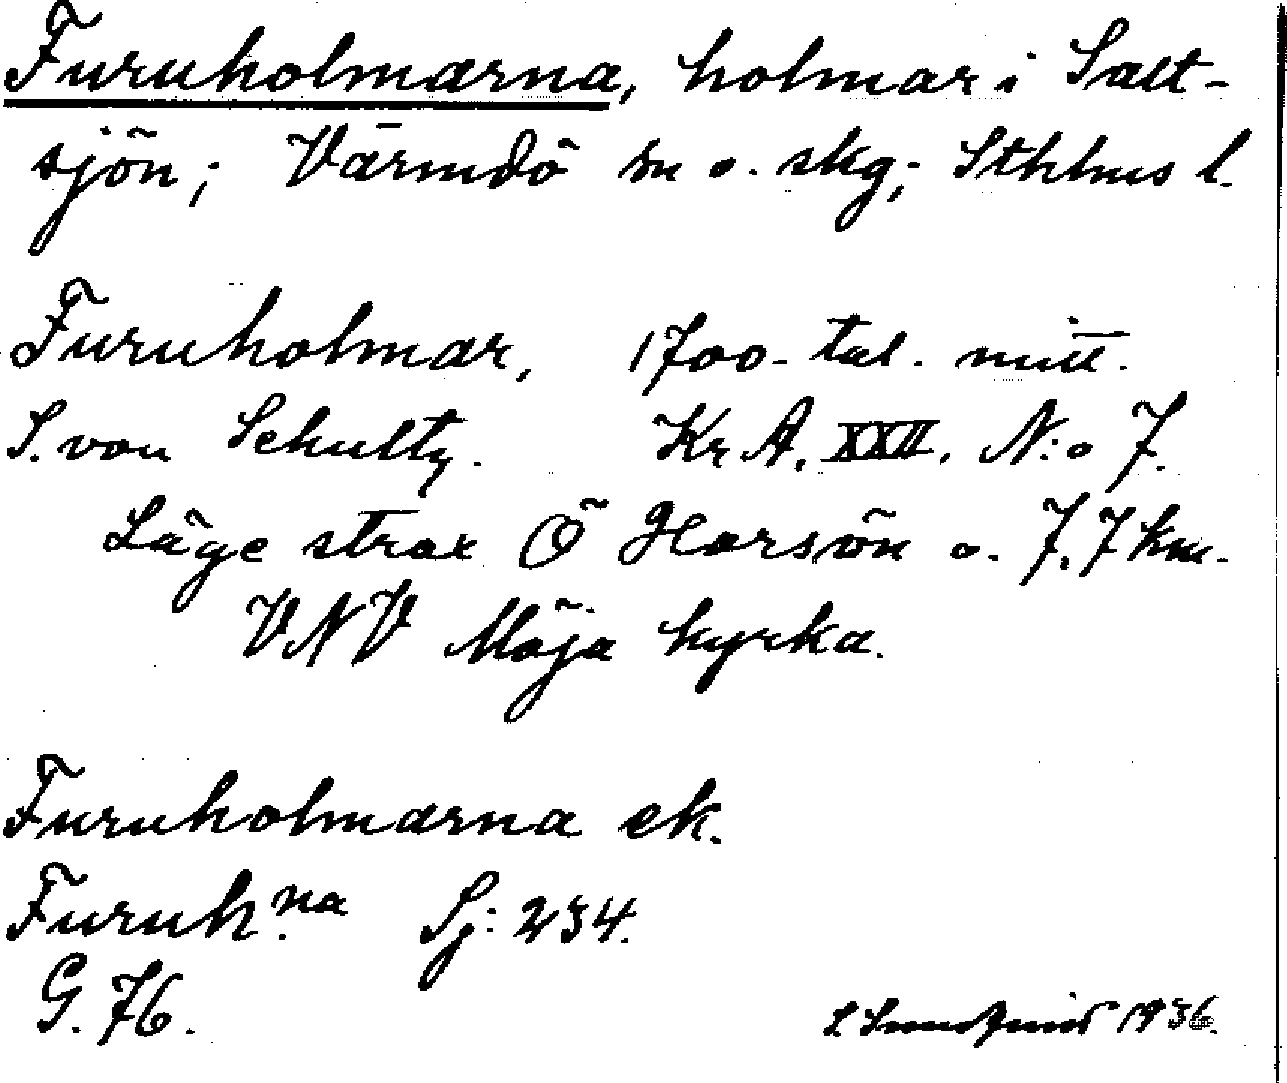 Furuholmarna, holmar i Salt-
sjön; Värmdö sn o. skg; Sthlms l.
Furuholmar, 1700-tal. mitt.
S. von Schultz. Kr A. XXII. N:o 7.
Läge strax Ö Harsön o. 7,7 km.
VNV Möja kyrka.
Furuholmarna ek.
Furuh.na Sj: 234.
G. 76.
1936.